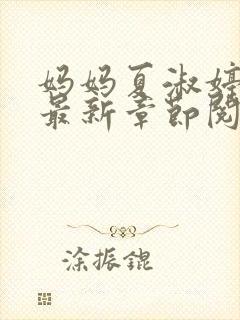 妈妈夏淑婷
最新章节阅
涂振锟